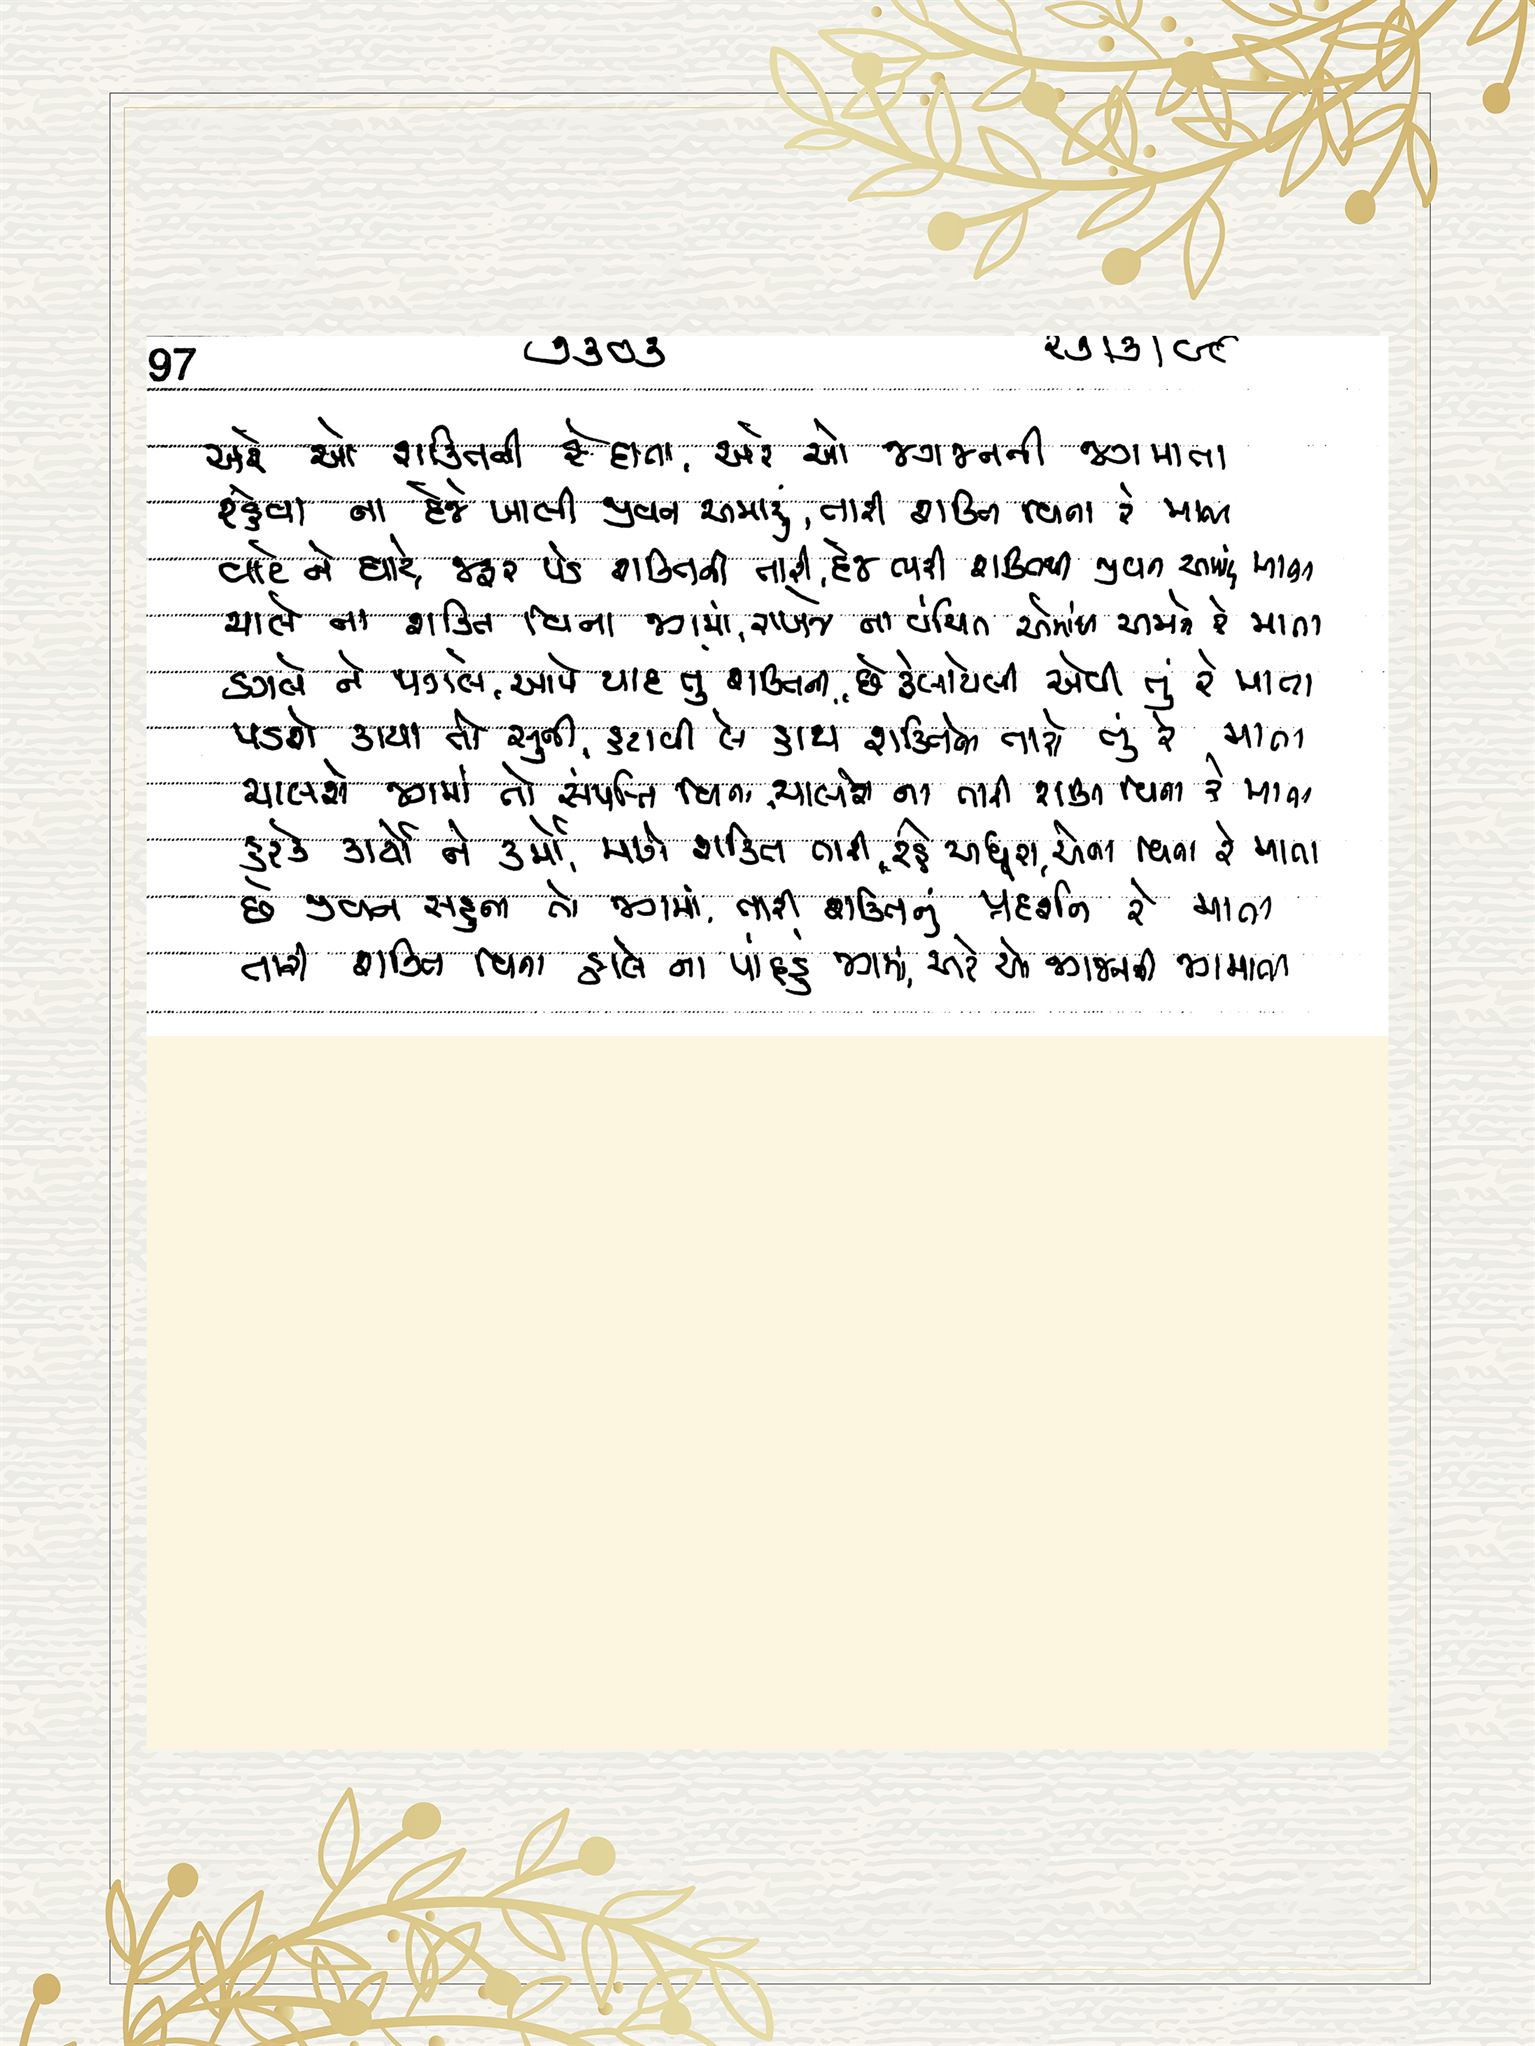 97 ૭૩૭૩ ૨૭/૩/૯૮
અરે ઓ શક્તિની રે દાતા, અરે ઓ જગજનની જગમાતા
રહેવા ના દેજે ખાલી જીવન અમારું, તારી શક્તિ વિના રે માતા
વાટે ને ઘાટે, જરૂર પડે શક્તિની તારી, દેજે ભરી શક્તિથી જીવન અમારું માતા
ચાલે ના શક્તિ વિના જગમાં, રાખજે ના વંચિત એમાંથી અમને રે માતા
ડગલે ને પગલે, આપે યાદ તું શક્તિની, છે ફેલાયેલી એવી તું રે માતા
પડશે કાયા તો સૂની, હટાવી લે હાથ શક્તિનો તારો તું રે માતા
ચાલશે જગમાં તો સંપત્તિ વિના, ચાલશે ના તારી શક્તિ વિના રે માતા
હરેક કાર્યો ને કર્મો, માગે શક્તિ તારી, રહે અધૂરા, એના વિના રે માતા
છે જીવન સહુના તો જગમાં, તારી શક્તિનું પ્રદર્શન રે માતા
તારી શક્તિ વિના હાલે ના પાંદડું જગમાં, અરે ઓ જગજનની જગમાતા